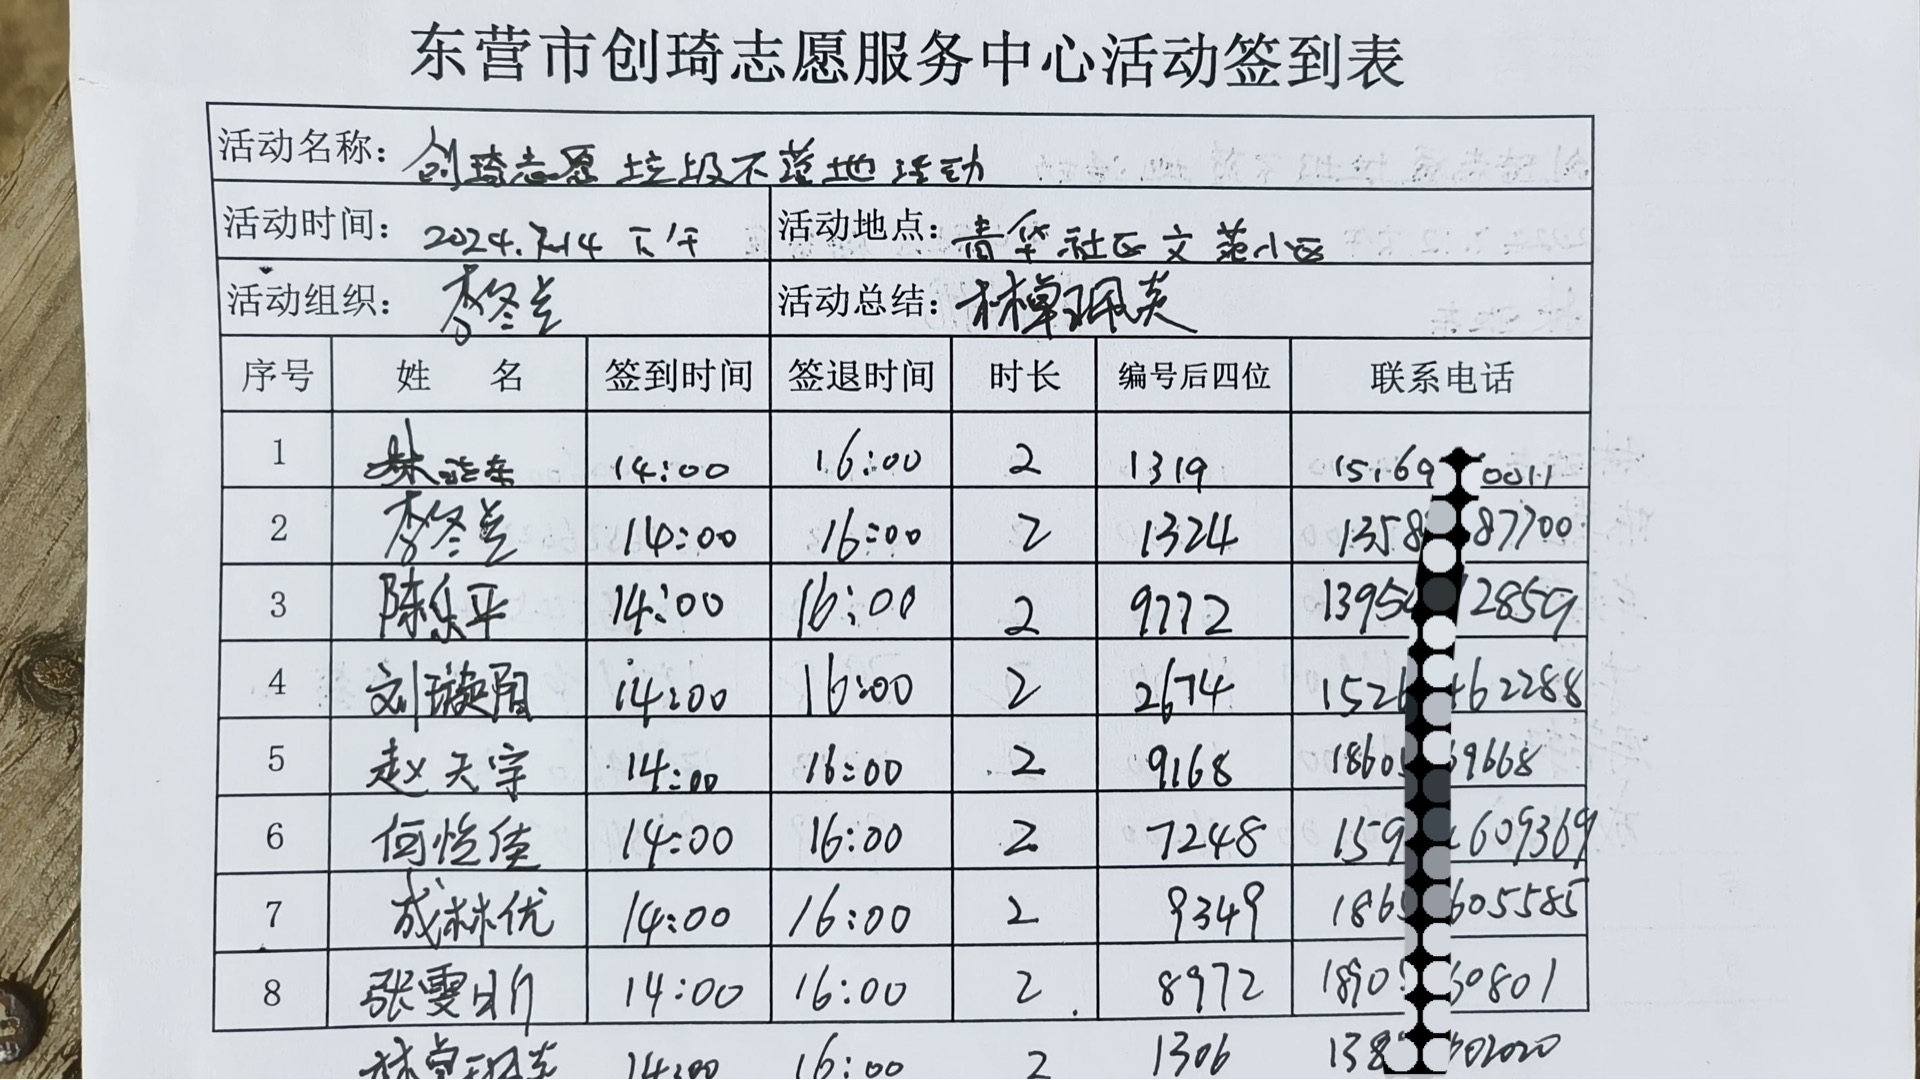 东营市创琦志愿服务中心活动签到表
活动名称：创琦志愿垃圾不落地活动
活动时间：2024.7.14 下午 活动地点：青华社区文苑小区
活动组织：李冬兰 活动总结：林卓珮炎
序号 姓 名 签到时间 签退时间 时长 编号后四位 联系电话
1 14:00 16:00 2 1319 15169 0011
2 李冬兰 14:00 16:00 2 1324 1358 87700
3 陈乐平 14:00 16:00 2 9772 1395 2859
4 刘璇阁 14:00 16:00 2 2674 152 62288
5 赵天宇 14:00 16:00 2 9168 1860 9668
6 何悦佳 14:00 16:00 2 7248 159 609369
7 成林优 14:00 16:00 2 9349 186 605585
8 张雯昕 14:00 16:00 2 8972 1890 0801
林卓珮炎 14:00 16:00 2 1306 138 02020